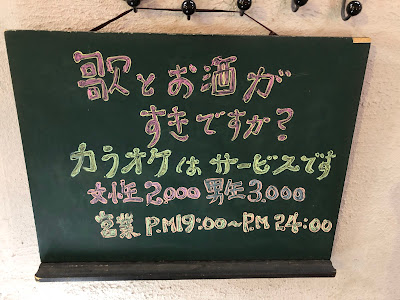 歌とお酒が
すきですか?
カラオケは サービスです
女性 2,000 男性 3,000
営業 P.M19:00~P.M 24:00